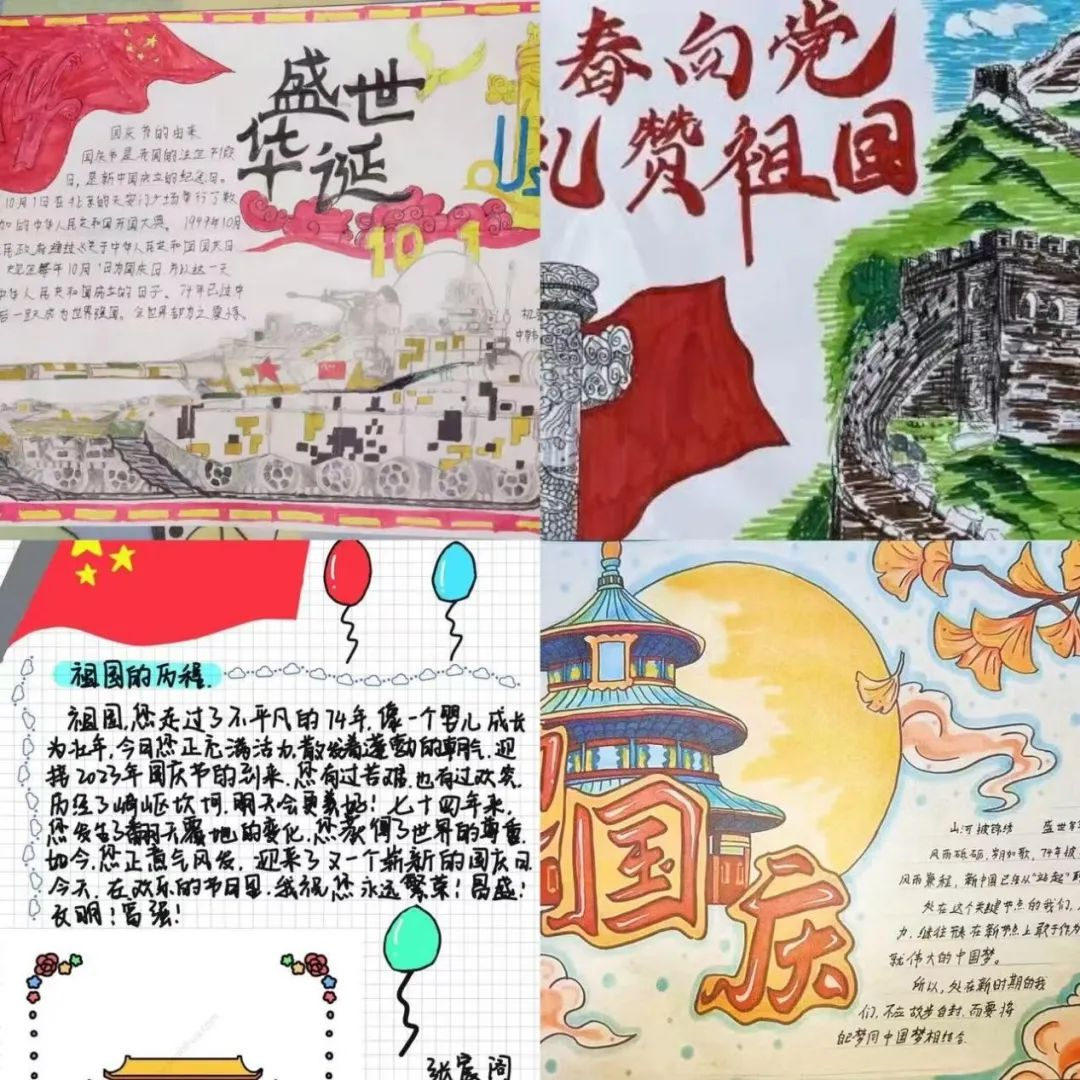 盛世
华诞
国庆节的由来
国庆节是我国的法定节假
日,是新中国成立的纪念日。
10月1日在北京的天安门广场举行了数
加的中华人民共和国开国大典。1949年10月
民政府通过《关于中华人民共和国国庆日
规定每年10月1日为国庆日,并以这一天
中华人民共和国成立的日子。74年已过中
后一跃成为世界强国。全世界都为之震撼。
10 1
春向党
礼赞祖国
祖国的历程.
祖国,您走过了不平凡的74年,像一个婴儿成长
为壮年,今日您正充满活力,散发着蓬勃的朝气,迎
接2023年国庆节的到来,您有过苦难,也有过欢笑,
历经了崎岖坎坷,明天会更美好!七十四年来,
您发生了翻天覆地的变化,您获得了世界的尊重,
如今,您正意气风发,迎来了又一个崭新的国庆日
今天,在欢乐的节日里,我祝您永远繁荣!昌盛!
文明!富强!
张宸阁
国
庆
山河披锦绣 盛世
风雨砥砺,岁月如歌,74年披
风雨兼程,新中国已经从“站起”
处在这个关键节点的我们,
力,继往开来在新节点上敢于作为
就伟大的中国梦。
所以,处在新时期的我
们,不应故步自封,而要将
自己梦同中国梦相结合.